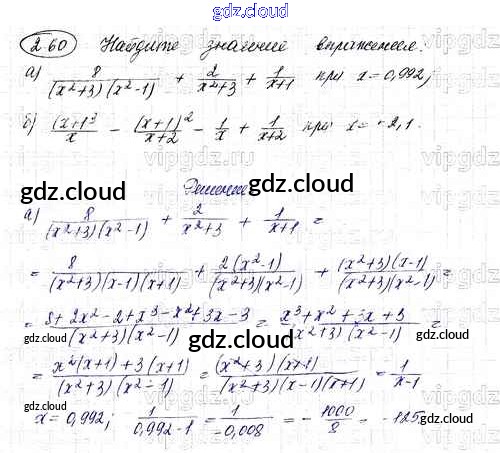 gdz.cloud
260 Найдите значение выражения:
а) 8/((x²+3)(x²-1)) + 2/(x²+3) + 1/(x+1) при x=0,992;
б) (x+1)³/x - (x+1)²/(x+2) - 1/x + 1/(x+2) при x=-2,1.
gdz.cloud
Решение
gdz.cloud
а) 8/((x²+3)(x²-1)) + 2/(x²+3) + 1/(x+1) =
= 8/((x²+3)(x-1)(x+1)) + 2(x²-1)/((x²+3)(x²-1)) + (x²+3)(x-1)/((x²+3)(x²-1)) =
= (8+2x²-2+x³-x²+3x-3)/((x²+3)(x²-1)) = (x³+x²+3x+3)/((x²+3)(x²-1)) =
gdz.cloud
gdz.cloud
= (x²(x+1)+3(x+1))/((x²+3)(x²-1)) = (x²+3)(x+1)/((x²+3)(x-1)(x+1)) = 1/(x-1)
x=0,992; 1/(0,992-1) = 1/(-0,008) = -1000/8 = -125.
gdz.cloud